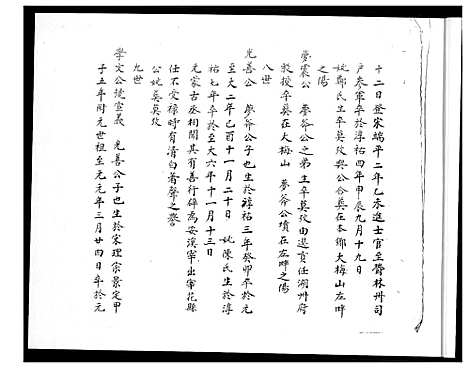 十二日登宋端平二年乙未進士官至欝林州司
戶參軍卒於淳祐四年甲辰九月十九日
妣鄭氏生卒莫攷與公合葬在本鄉大梅山左畔
之陽
夢震公 夢爺公之弟生卒莫攷由選貢任湖州府
教授卒葬在大梅山 夢爺公墳在左畔之陽
八世
光善公 夢爺公子也生於淳祐三年癸卯卒於元
至大二年己酉十一月二十日 妣陳氏生於淳
祐七年卒於至大六年十一月十三日
元蒙古丞相聞其有善行碎為安溪宰出宰花縣
任不受祿時有清白著聲之譽
公妣葬莫攷
九世
學文公諱宣義 光善公子也生於宋理宗景定甲
子五年附元世祖至元元年三月廿四日卒於元